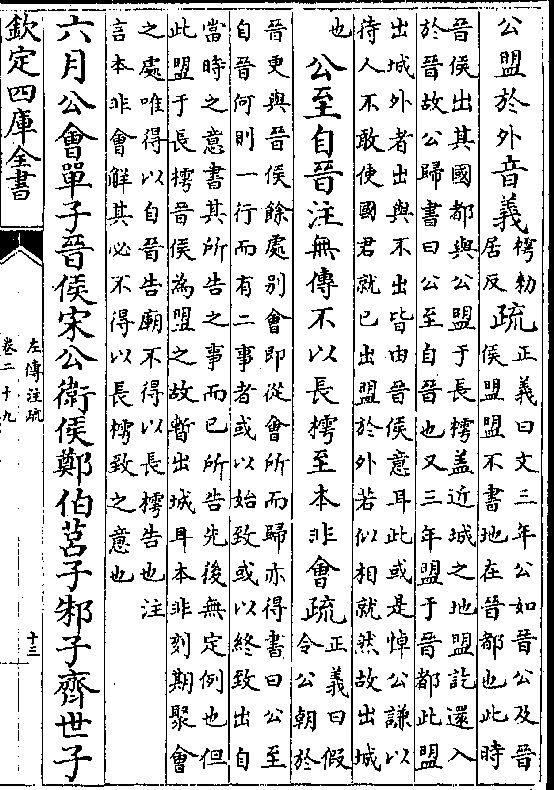 公盟於外音義樗勑居反疏正義曰文三年公如晉公及晉
侯盟盟不書地在晉都也此時
晉侯出其國都與公盟于長樗蓋近城之地盟訖還入
於晉故公歸書曰公至自晉也又三年盟于晉都此盟
出城外者出與不出皆由晉侯意耳此或是悼公謙以
待人不敢使國君就已出盟於外若似相就然故出城
也
公至自晉注無傳不以長樗至本非會疏正義曰假
令公朝於
晉更與晉侯餘處别會即從會所而歸亦得書曰公至
自晉何則一行而有二事者或以始致或以終致出自
當時之意書其所告之事而已所告先後無定例也但
此盟于長樗晉侯為盟之故暫出城耳本非刻期聚會
之處唯得以自晉告廟不得以長樗告也注
言本非會解其必不得以長樗致之意也
六月公會單子晉侯宋公衛侯鄭伯莒子邾子齊世子
欽定四庫全書
左傳注疏
卷二十九
十三